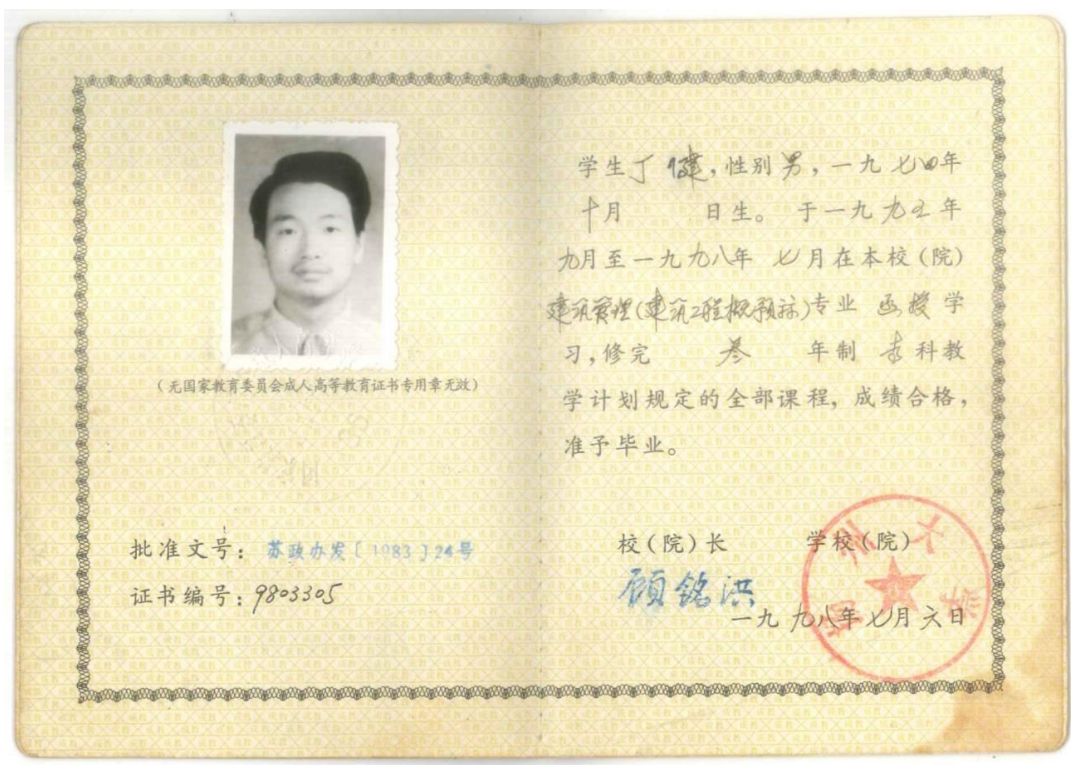 (无国家教育委员会成人高等教育证书专用章无效)
批准文号：苏政办发〔1983〕24号
证书编号：9803305
学生丁健，性别男，一九七四年
十月 日生。于一九九五年
九月至一九九八年七月在本校(院)
建筑管理(建筑工程概预算)专业函授学
习，修完 叁 年制本科教
学计划规定的全部课程，成绩合格，
准予毕业。
校(院)长 学校(院)
顾铭洪
一九九八年七月六日
扬州大学